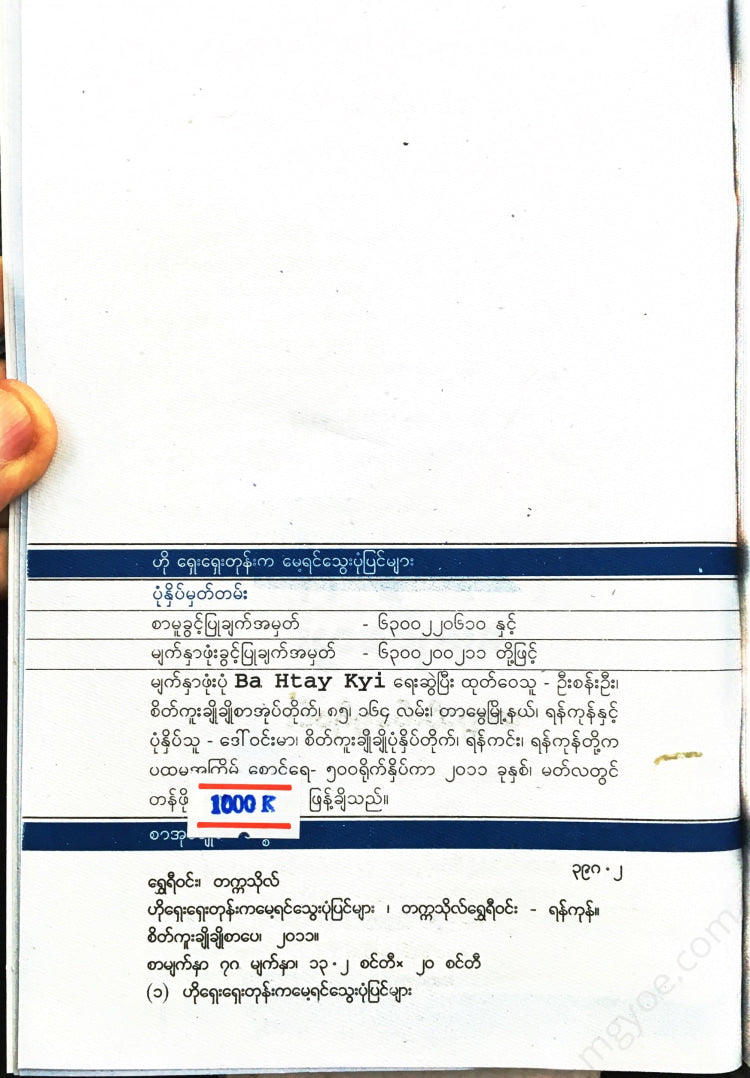 ဟို ရှေးရှေးတုန်းက မေ့ရင်သွေးပုံပြင်များ
ပုံနှိပ်မှတ်တမ်း
စာမူခွင့်ပြုချက်အမှတ် - ၆၃၀၀၂၂၀၆၁၀ နှင့်
မျက်နှာဖုံးခွင့်ပြုချက်အမှတ် - ၆၃၀၀၂၀၀၂၁၁ တို့ဖြင့်
မျက်နှာဖုံးပုံ Ba Htay Kyi ရေးဆွဲပြီး ထုတ်ဝေသူ - ဦးစန်းဦး၊
စိတ်ကူးချိုချိုစာအုပ်တိုက်၊ ၈၅၊ ၁၆၄ လမ်း၊ တာမွေမြို့နယ်၊ ရန်ကုန်နှင့်
ပုံနှိပ်သူ - ဒေါ်ဝင်းမာ၊ စိတ်ကူးချိုချိုပုံနှိပ်တိုက်၊ ရန်ကင်း၊ ရန်ကုန်တို့က
ပထမအကြိမ် စောင်ရေ- ၅၀၀ရိုက်နှိပ်ကာ ၂၀၁၁ ခုနှစ်၊ မတ်လတွင်
တန်ဖိုး 1000 K ဖြန့်ချိသည်။
၃၉၈ . ၂
ရွှေရီဝင်း၊ တက္ကသိုလ်
ဟိုရှေးရှေးတုန်းကမေ့ရင်သွေးပုံပြင်များ ၊ တက္ကသိုလ်ရွှေရီဝင်း - ရန်ကုန်။
စိတ်ကူးချိုချိုစာပေ၊ ၂၀၁၁။
စာမျက်နှာ ၇၈ မျက်နှာ၊ ၁၃ . ၂ စင်တီ× ၂၀ စင်တီ
(၁) ဟိုရှေးရှေးတုန်းကမေ့ရင်သွေးပုံပြင်များ
mgyoe.com